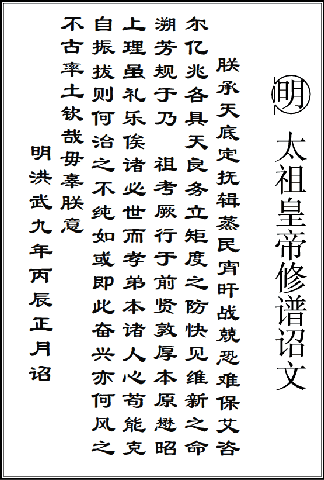 明 太祖皇帝修谱诏文
朕承天底定抚辑蒸民宵旰战兢恐难保艾咨
尔亿兆各具天良务立矩度之防快见维新之命
溯芳规于乃 祖考厥行于前贤敦厚本原懋昭
上理虽礼乐俟诸必世而孝弟本诸人心苟能克
自振拔则何治之不纯如或即此奋兴亦何风之
不古率土钦哉毋辜朕意
明洪武九年丙辰正月诏